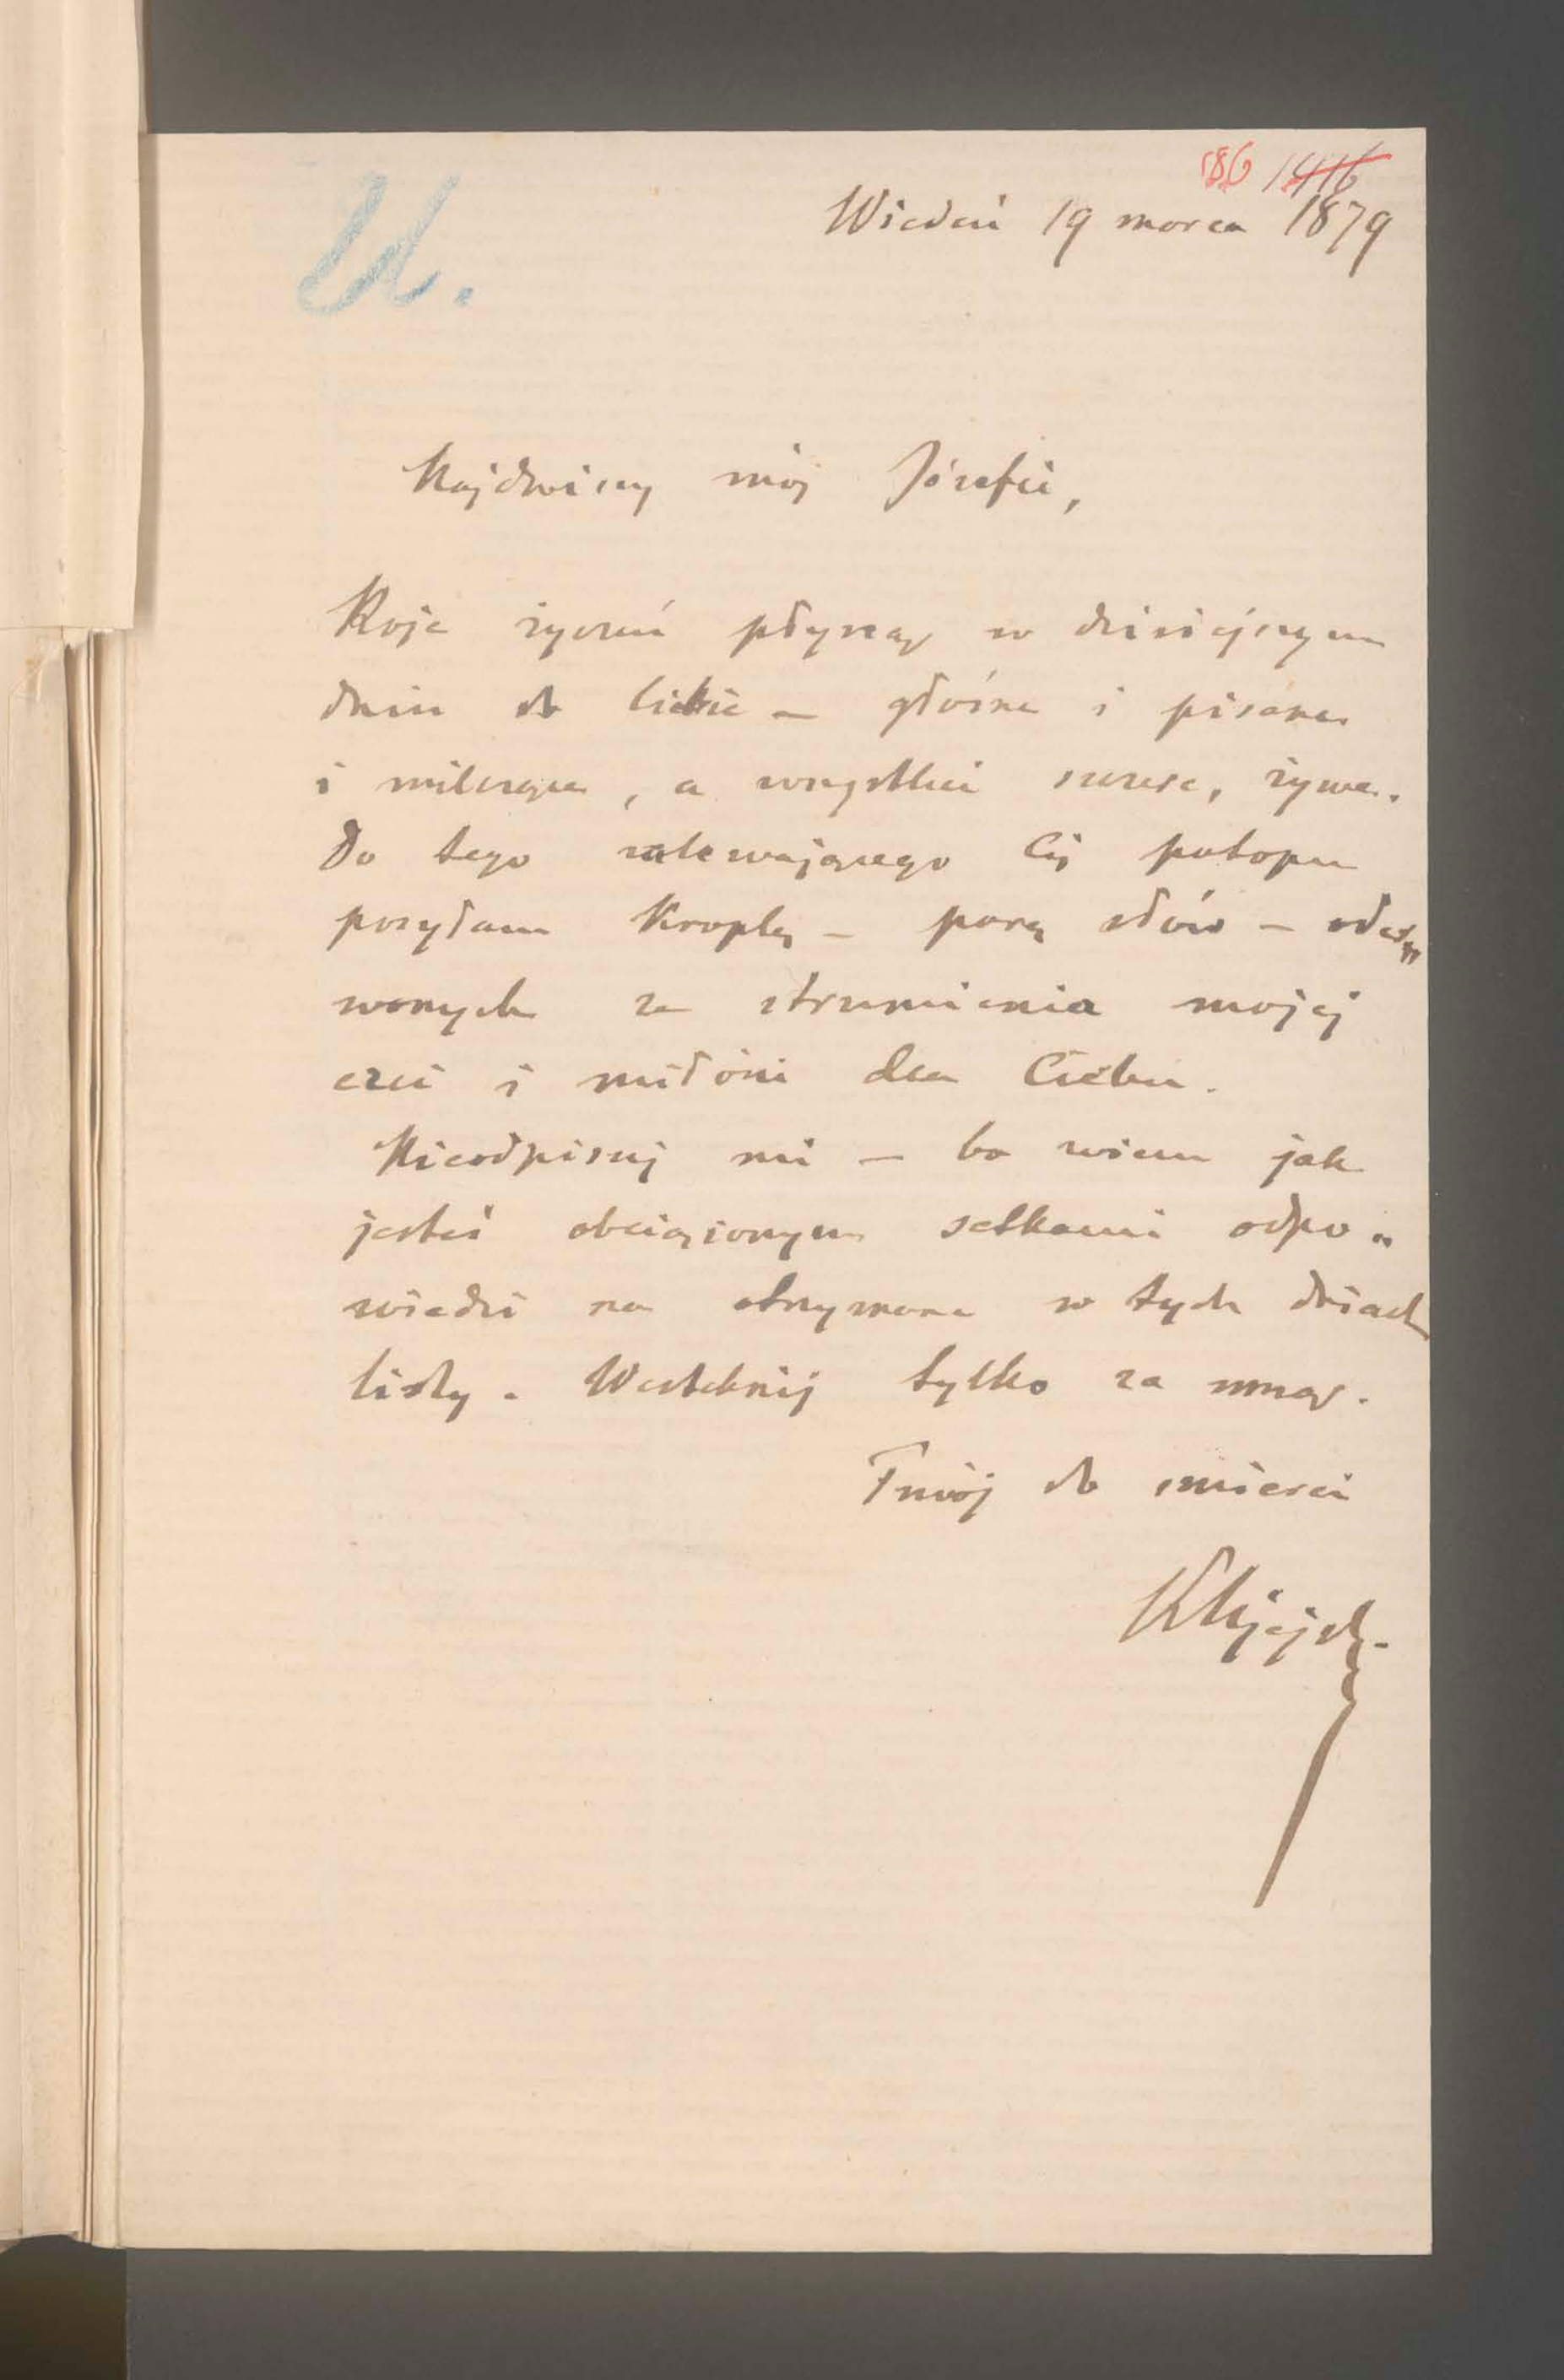 186 1416
Wiedeń 19 marca 1879
Ud.
Najdroższy mój Józefie,
Roje życzeń płyną w dzisiejszym
dniu do Ciebie – głośne i pisane
i milczące, a wszystkie szczere, żywe.
Do tego zalewającego Cię potopu
posyłam kroplę – parę słów – oder„
wanych ze strumienia mojej
czci i miłości dla Ciebie.
Nieodpisuj mi – bo wiem jak
jesteś obciążonym setkami odpo„
wiedzi na otrzymane w tych dniach
listy. Westchnij tylko za mną.
Twój do śmierci